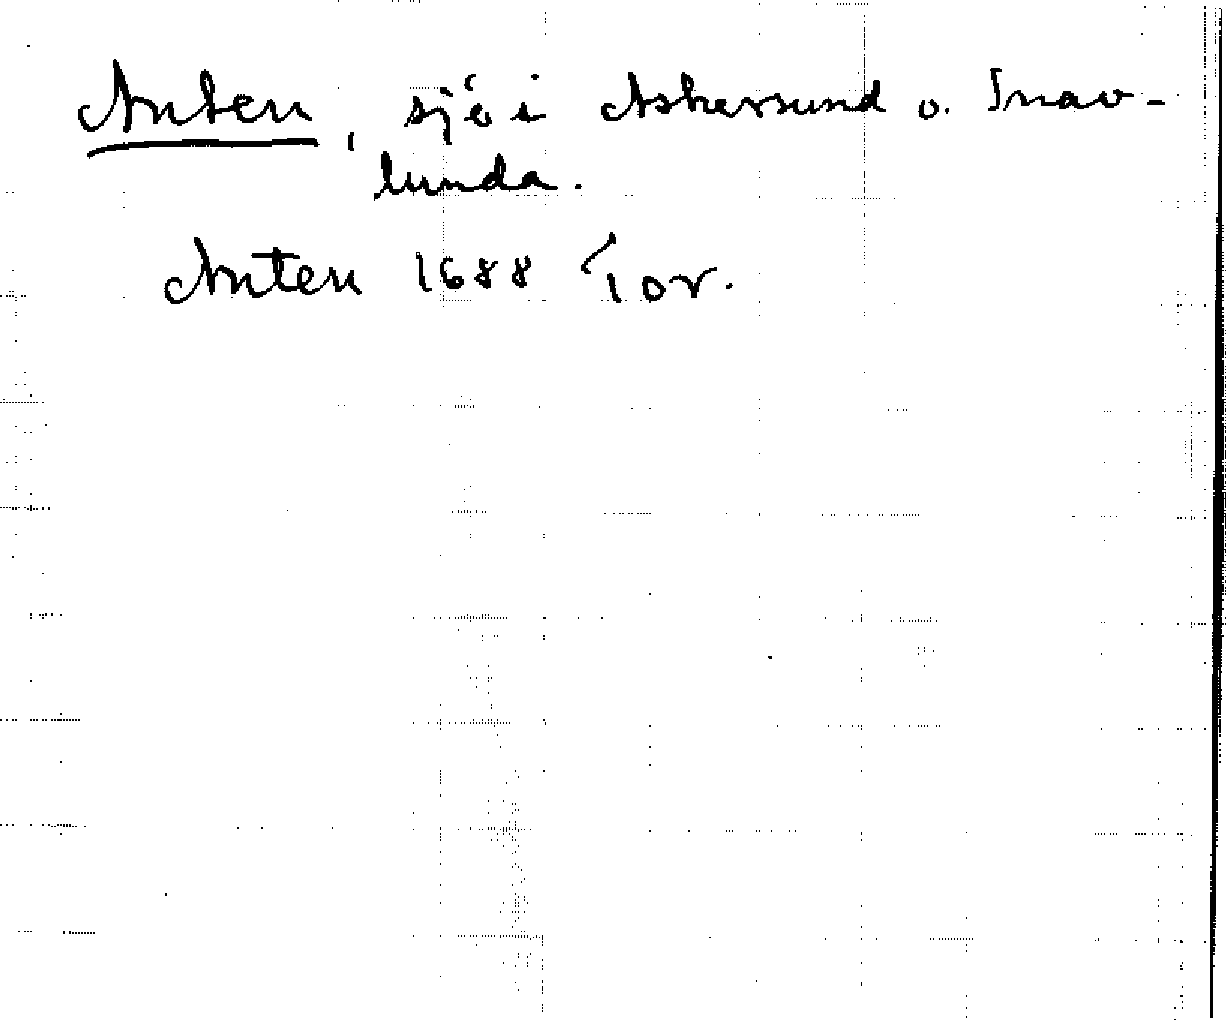 Anten, sjö i Askersund o. Snav-
lunda.
Anten 1688 Tor.